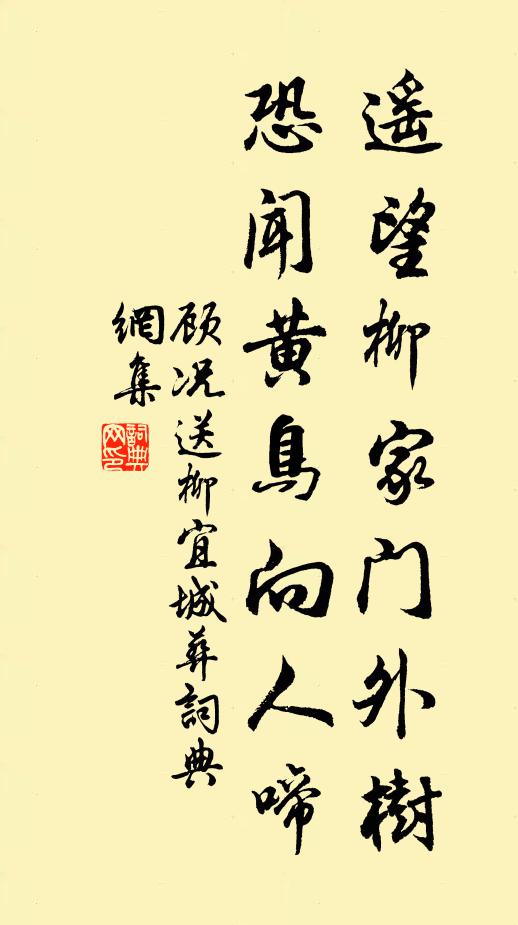 遥望柳家门外樹
恐闻黄鳥向人啼
顾况送柳宜城葬詞典
網集
詞典
网印